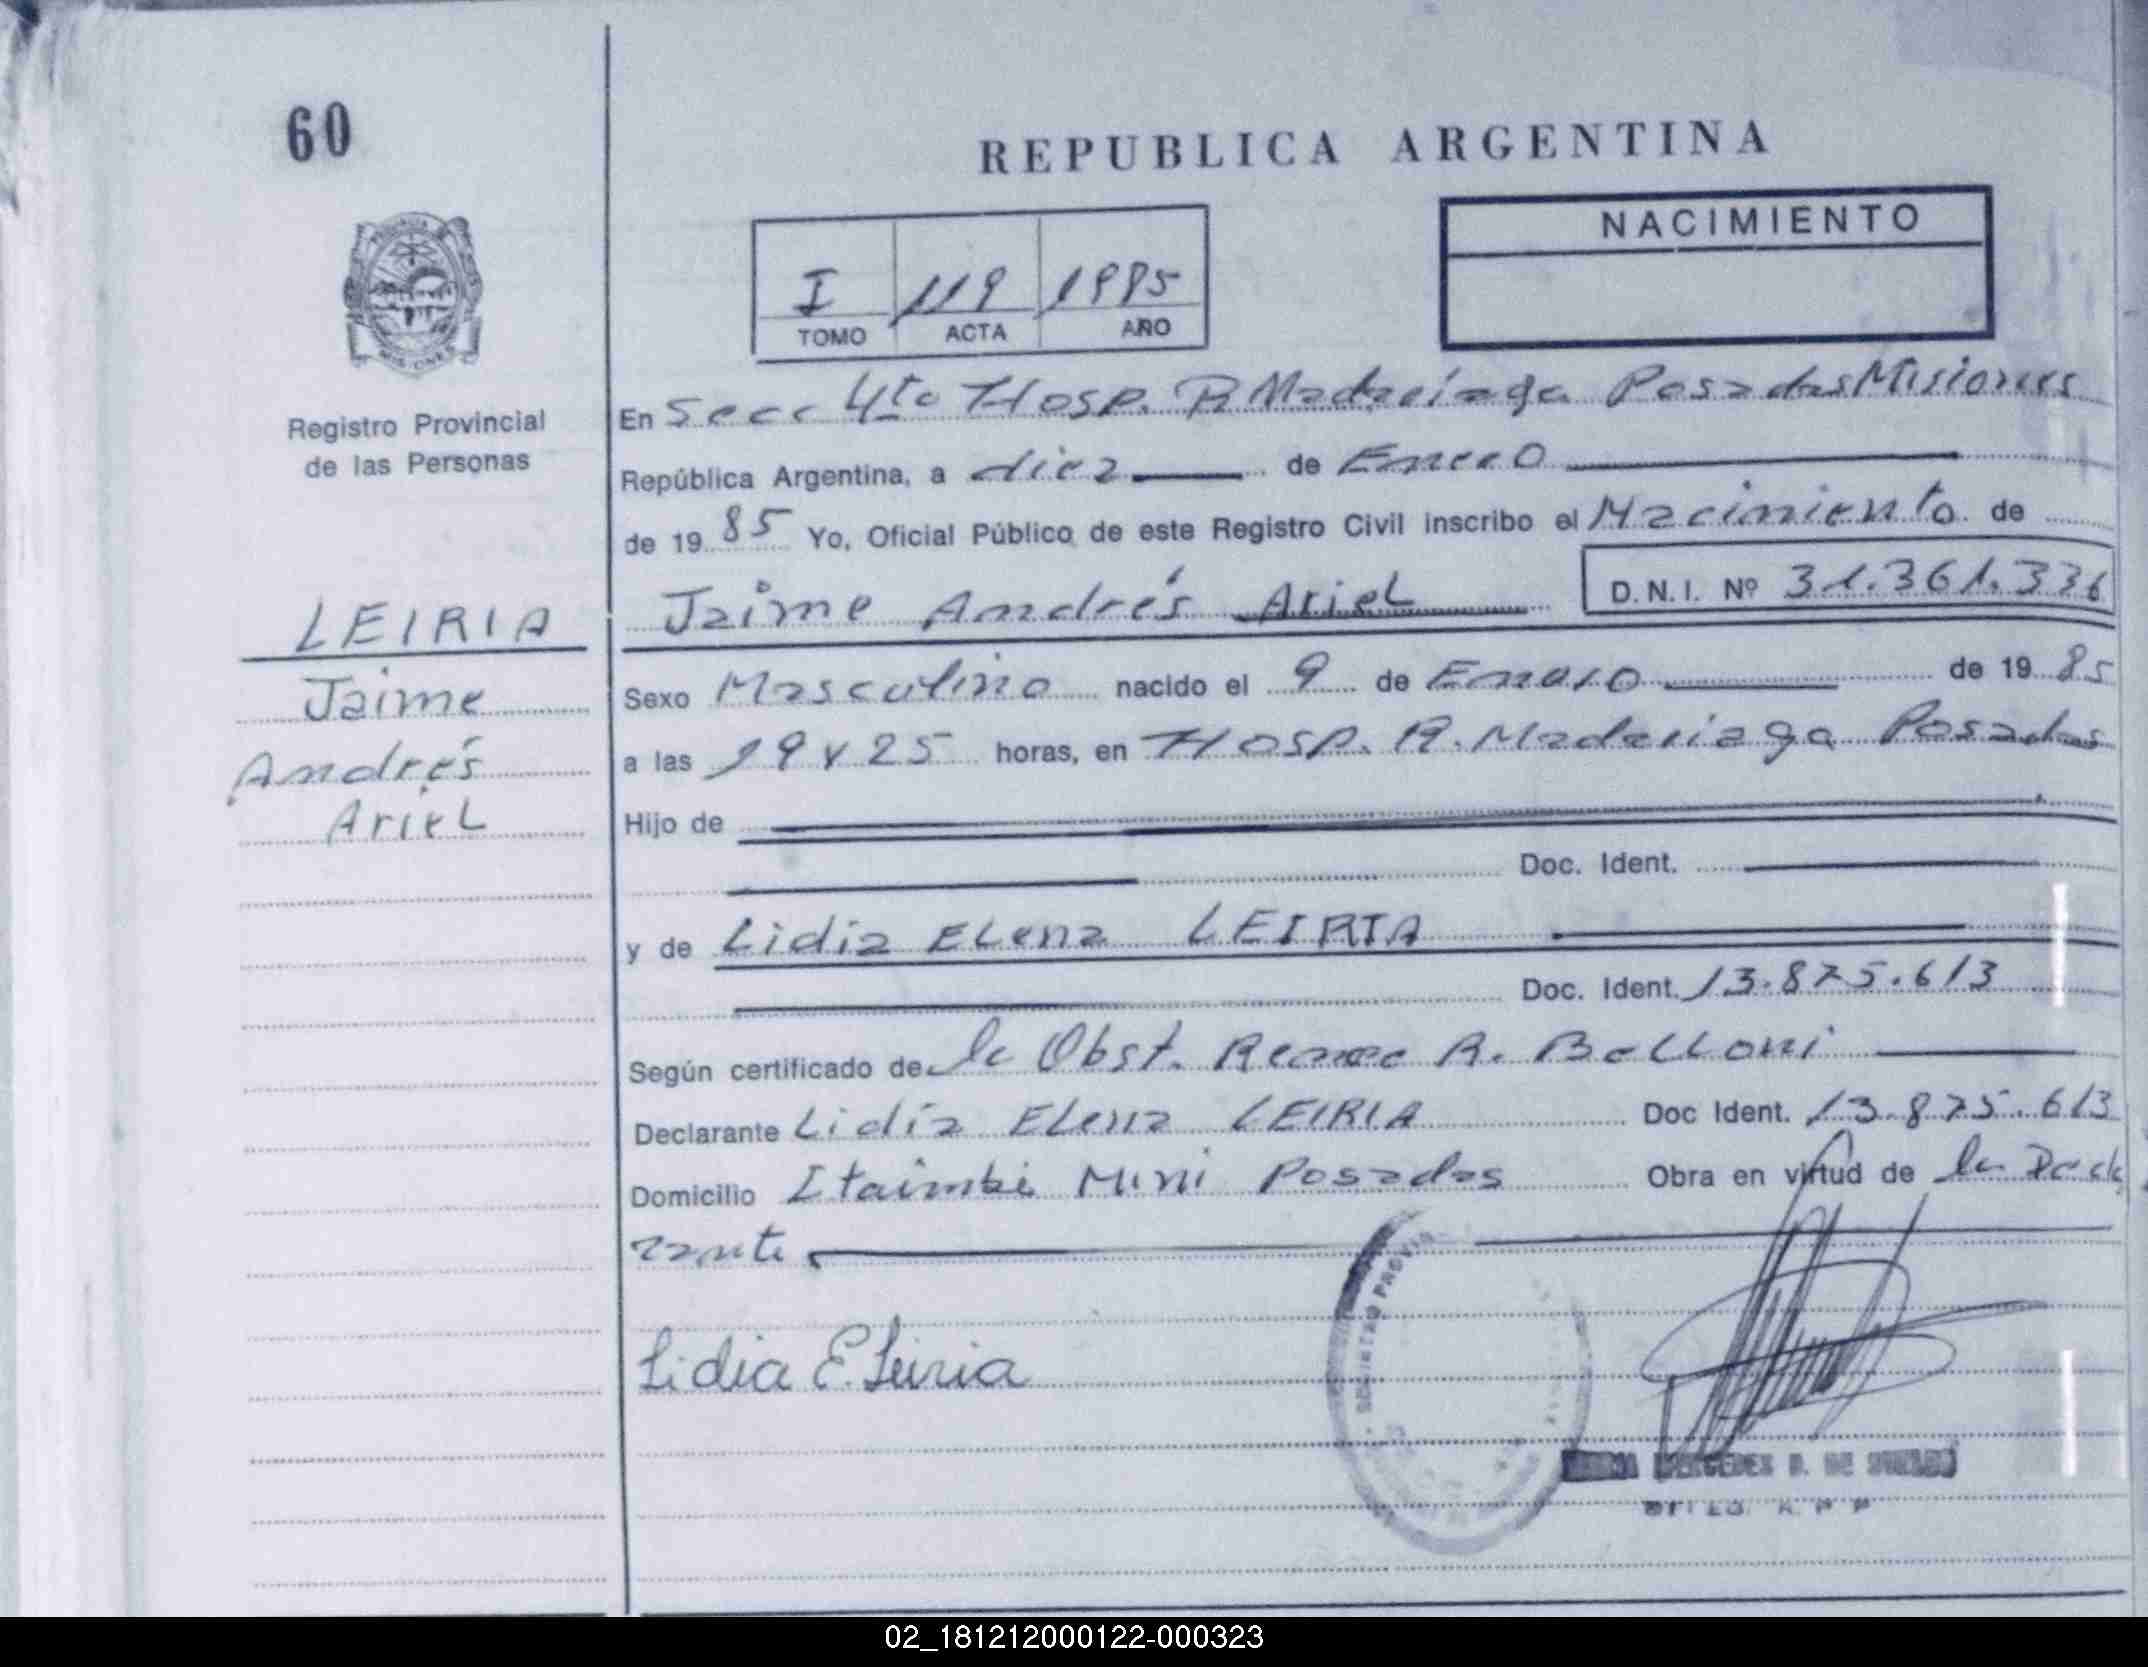 60
REPUBLICA ARGENTINA
NACIMIENTO
I 119 1985
TOMO ACTA AÑO
Registro Provincial
de las Personas
En Secc 4ta Hosp. R Madariaga Posadas Misiones
República Argentina, a diez de Enero
de 1985 Yo, Oficial Público de este Registro Civil inscribo el Nacimiento de
Jaime Andrés Ariel D.N.I. Nº 31.361.336
LEIRIA
Jaime
Andrés
Ariel
Sexo Masculino nacido el 9 de Enero de 1985
a las 19 y 25 horas, en Hosp. R. Madariaga Posadas
Hijo de
Doc. Ident.
y de Lidia Elena LEIRIA
Doc. Ident. 13.875.613
Según certificado de la Obst. R. Belloni
Declarante Lidia Elena LEIRIA Doc Ident. 13.875.613
Domicilio Itaimbé Mini Posadas Obra en virtud de la Decla
rante
Lidia E. Leiria
02_181212000122-000323